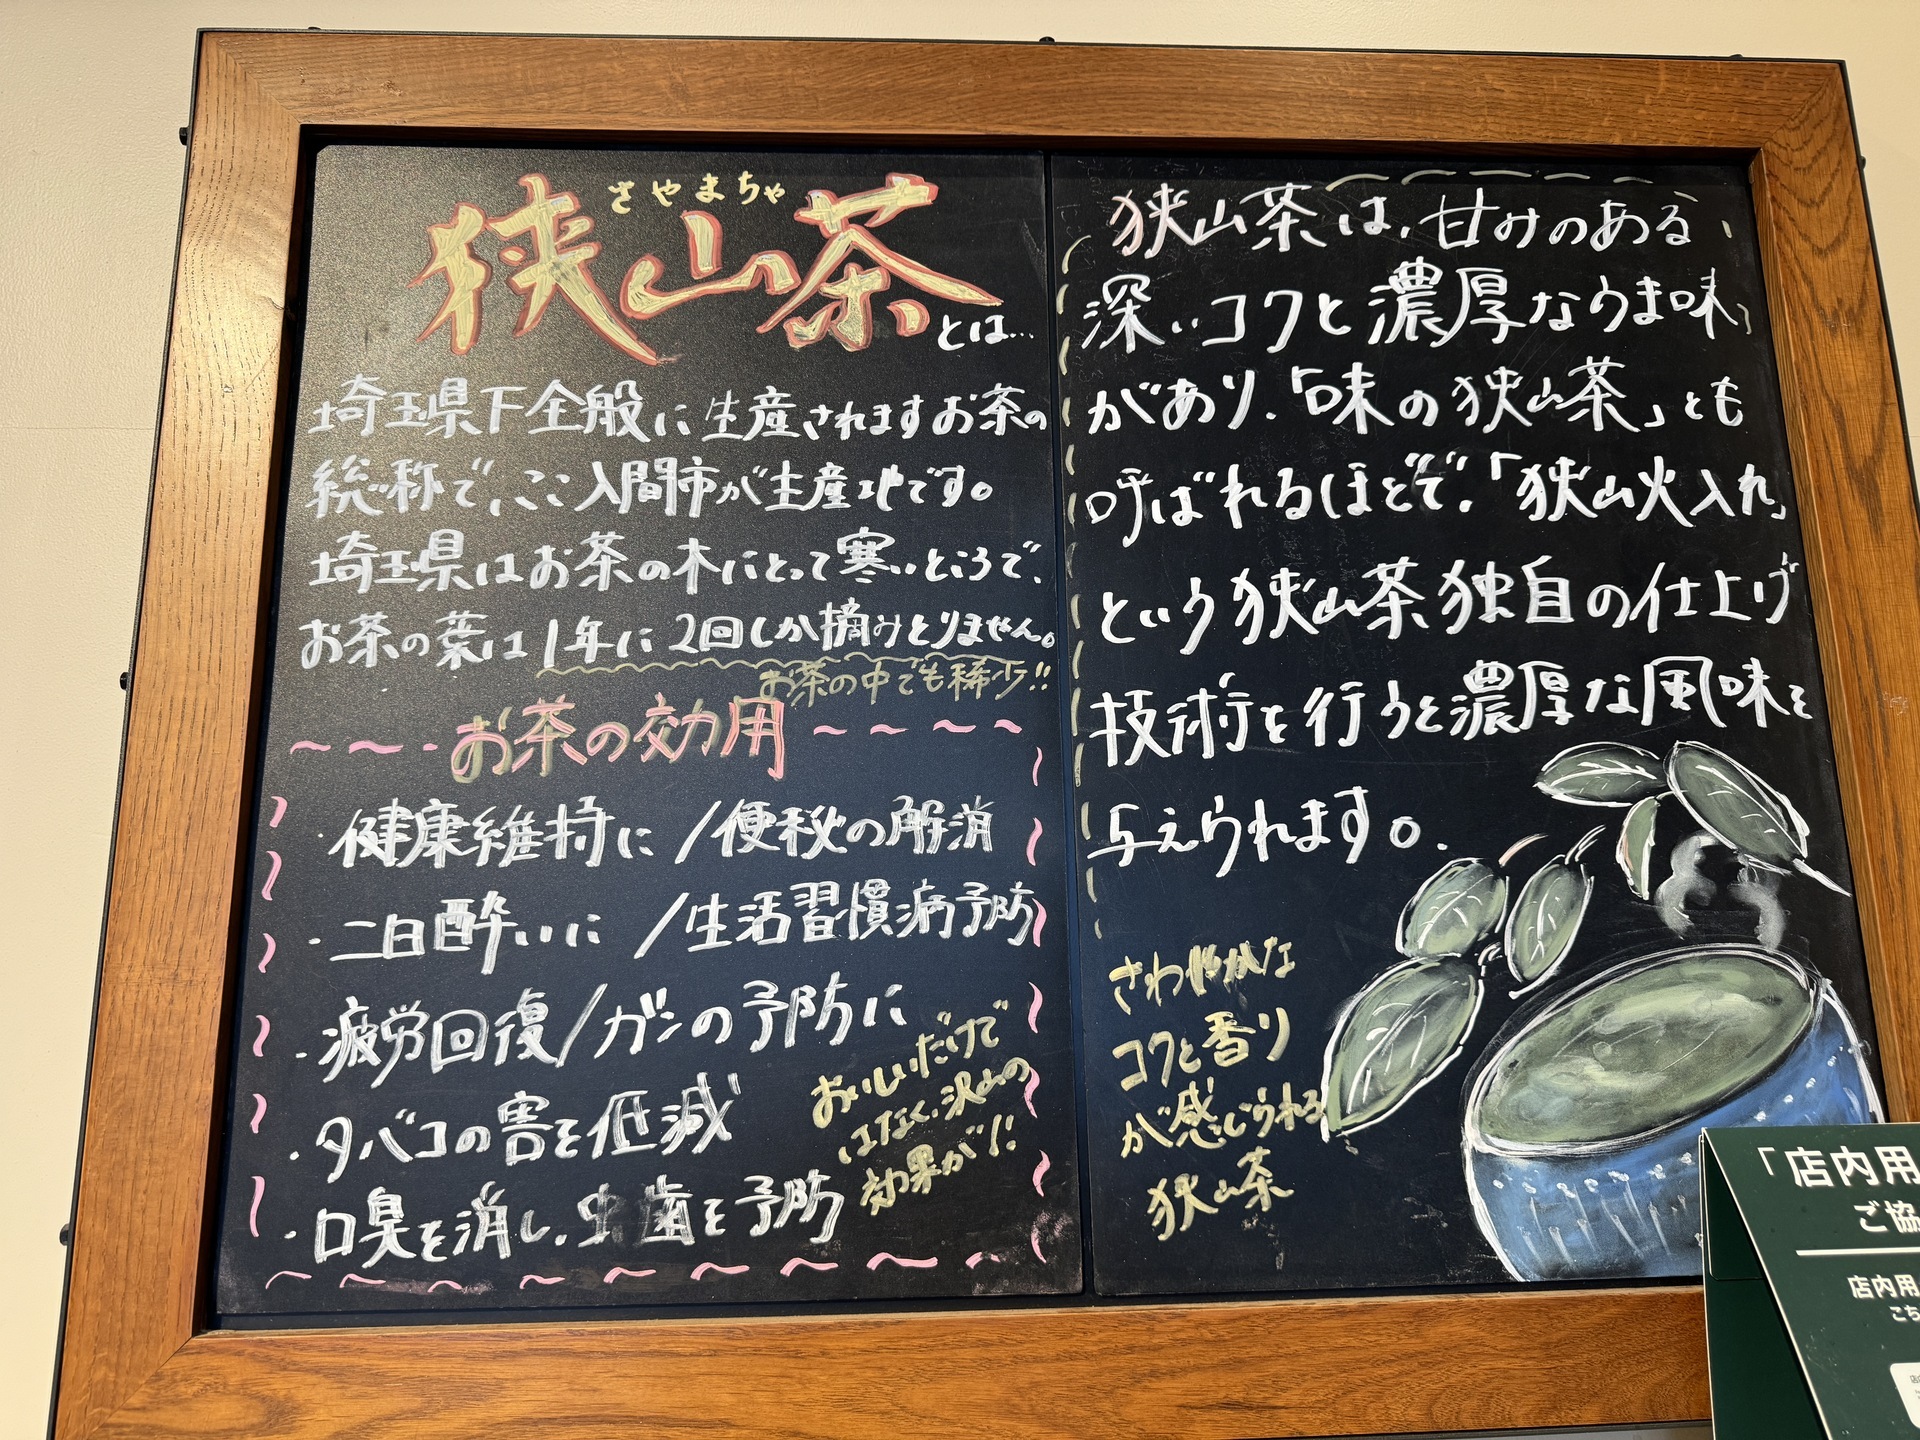 さやまちゃ
狭山茶
とは…
埼玉県下全般に生産されますお茶の
総称で、ここ入間市が生産地です。
埼玉県はお茶の木にとって寒いところで、
お茶の葉は1年に2回しか摘みとりません。
お茶の中でも稀少!!
お茶の効用
・健康維持に/便秘の解消
・二日酔いに/生活習慣病予防
・疲労回復/ガンの予防に
・タバコの害を低減
・口臭を消し、虫歯を予防
おいしいだけで
はなく、沢山の
効果が!!
狭山茶は、甘みのある
深いコクと濃厚なうま味
があり、「味の狭山茶」とも
呼ばれるほどで、「狭山火入れ」
という狭山茶独自の仕上げ
技術を行うと濃厚な風味を
与えられます。
さわやかな
コクと香り
が感じられる
狭山茶
「店内用
ご協
店内用
こち